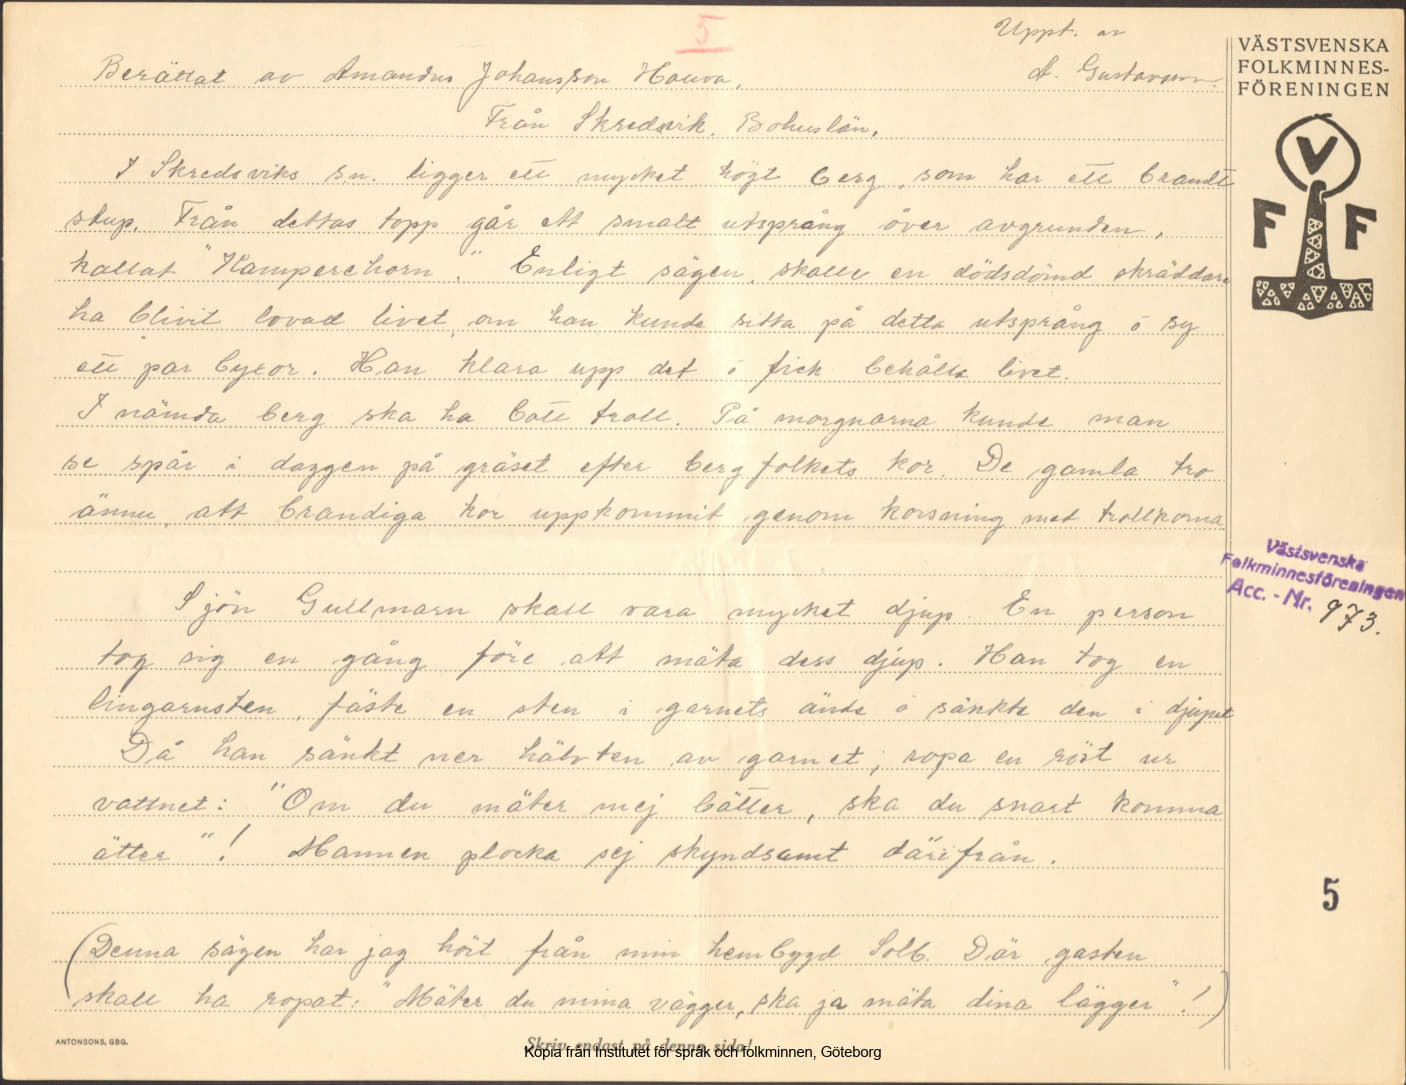 5
Uppt. av
A. Gustavsson.
Berättat av Amandus Johansson Hauva.
Från Skredsvik. Bohuslän.
I Skredsviks sn. ligger ett mycket högt berg, som har ett brandt
stup. Från dettas topp går ett smalt utsprång över avgrunden,
kallat "Kamperehorn". Enligt sägen skulle en dödsdömd skräddare
ha blivit lovad livet, om han kunde sitta på detta utsprång ö sy
ett par byxor. Han klara upp det ö fick behålla livet.
I nämda berg ska ha bott troll. På morgnarna kunde man
se spår i daggen på gräset efter bergfolkets kor. De gamla tro
ännu, att brandiga kor uppkommit genom korsning met trollkorna
Sjön Gullmarn skall vara mycket djup. En person
tog sig en gång före att mäta dess djup. Han tog en
lingarnsten, fäste en sten i garnets ände ö sänkte den i djupet
Då han sänkt ner hälvten av garnet, ropa en röst ur
vattnet: "Om du mäter mej bätter, ska du snart komma
ätter"! Mannen plocka sej skyndsamt därifrån.
(Denna sägen har jag hört från min hembygd Solb. Där gasten
skall ha ropat: "Mäter du mina vägger, ska ja mäta dina lägger"!)
VÄSTSVENSKA
FOLKMINNES-
FÖRENINGEN
V
F F
Västsvenska
Folkminnesföreningen
Acc. - Nr. 973.
5
ANTONSONS, GBG.
Skriv endast på denna sida!
Kopia från Institutet för språk och folkminnen, Göteborg